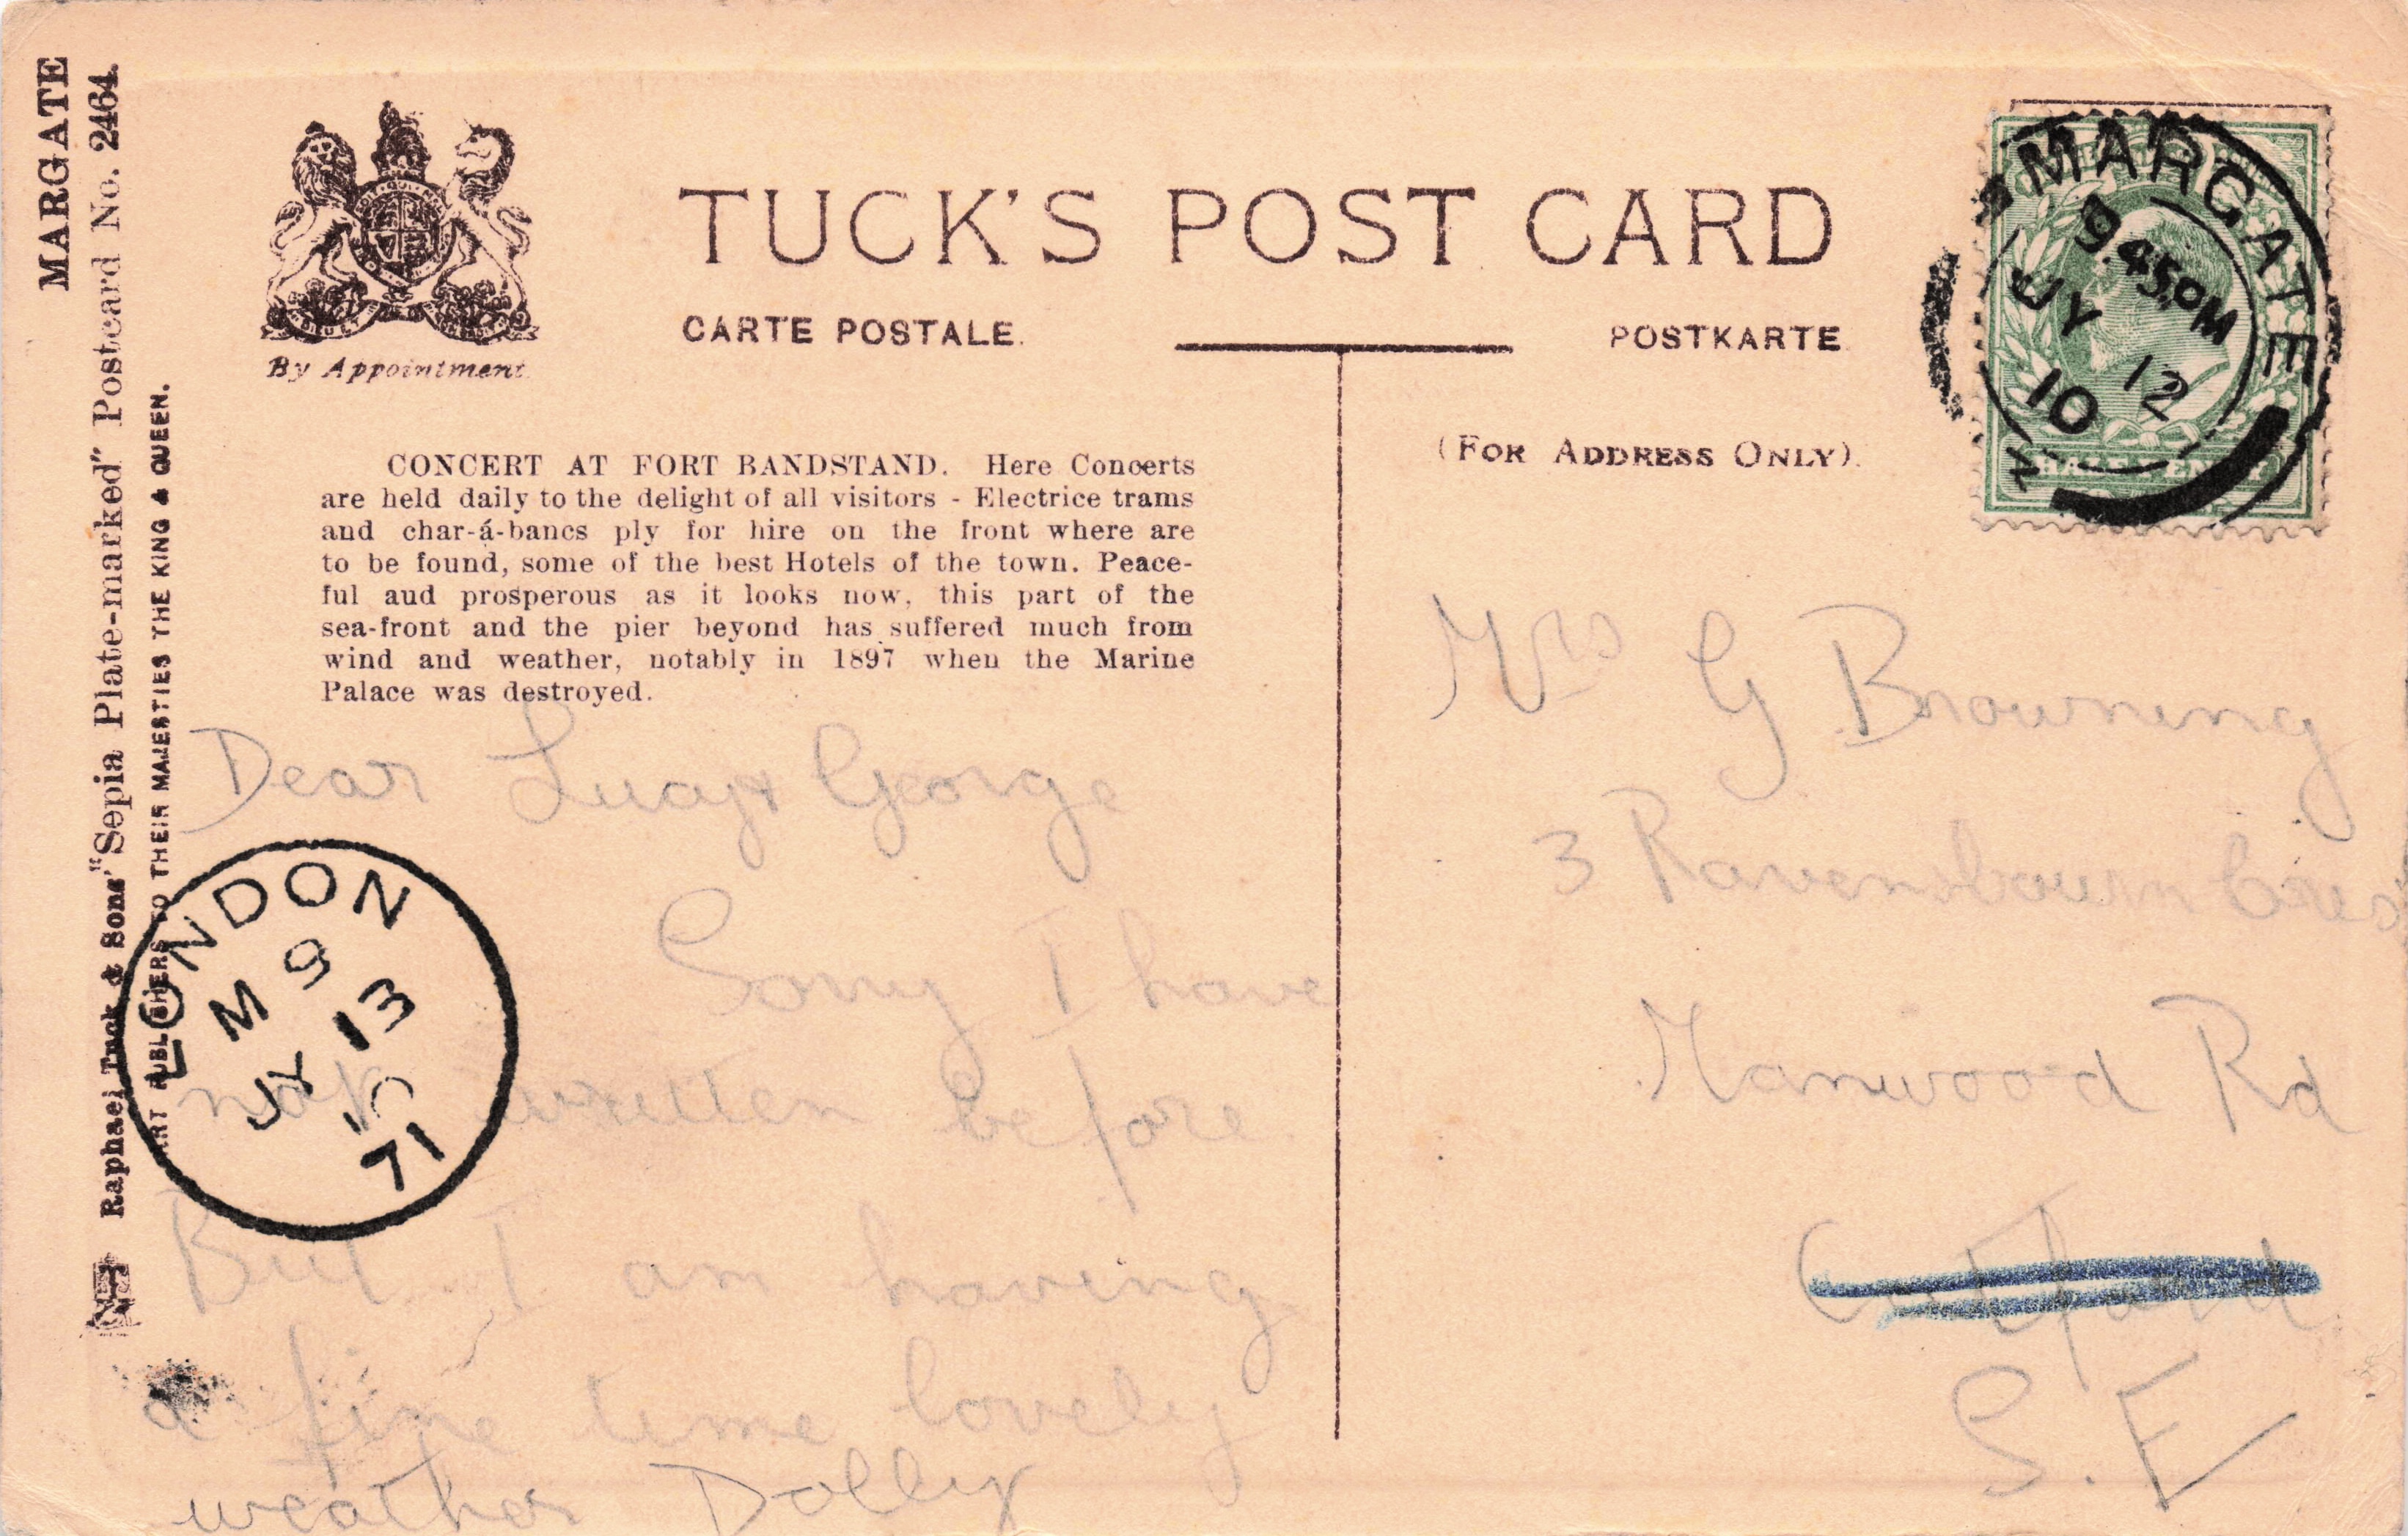 MARGATE
Raphael Tuck & Sons' "Sepia Plate-marked" Postcard No. 2464.
ART PUBLISHERS TO THEIR MAJESTIES THE KING & QUEEN.
By Appointment.
TUCK'S POST CARD
CARTE POSTALE.
POSTKARTE.
(FOR ADDRESS ONLY).
CONCERT AT FORT BANDSTAND. Here Concerts
are held daily to the delight of all visitors - Electrice trams
and char-á-bancs ply for hire on the front where are
to be found, some of the best Hotels of the town. Peace-
ful aud prosperous as it looks now, this part of the
sea-front and the pier beyond has suffered much from
wind and weather, notably in 1897 when the Marine
Palace was destroyed.
Dear & George
Sorry I have
not written before
But I am having
a fine time lovely
weather Dolly
Mrs G Browning
3 Ravensbourn Cres
Manwood Rd
Catford
S.E
MARGATE
9.45PM
JY 12
10
HALF PENNY
LONDON
M 9
JY 13
10
71